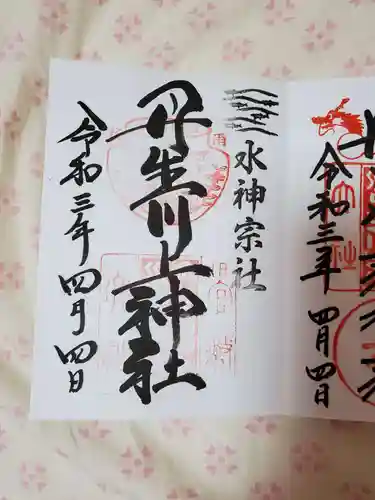 令和三年 四月 四日
水神宗社
丹生川上神社
令和三年 四月 四日